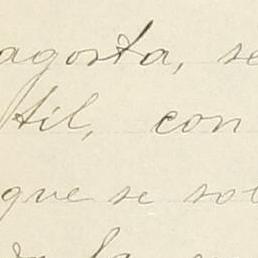 agosta, se
til, con
que se sol
la